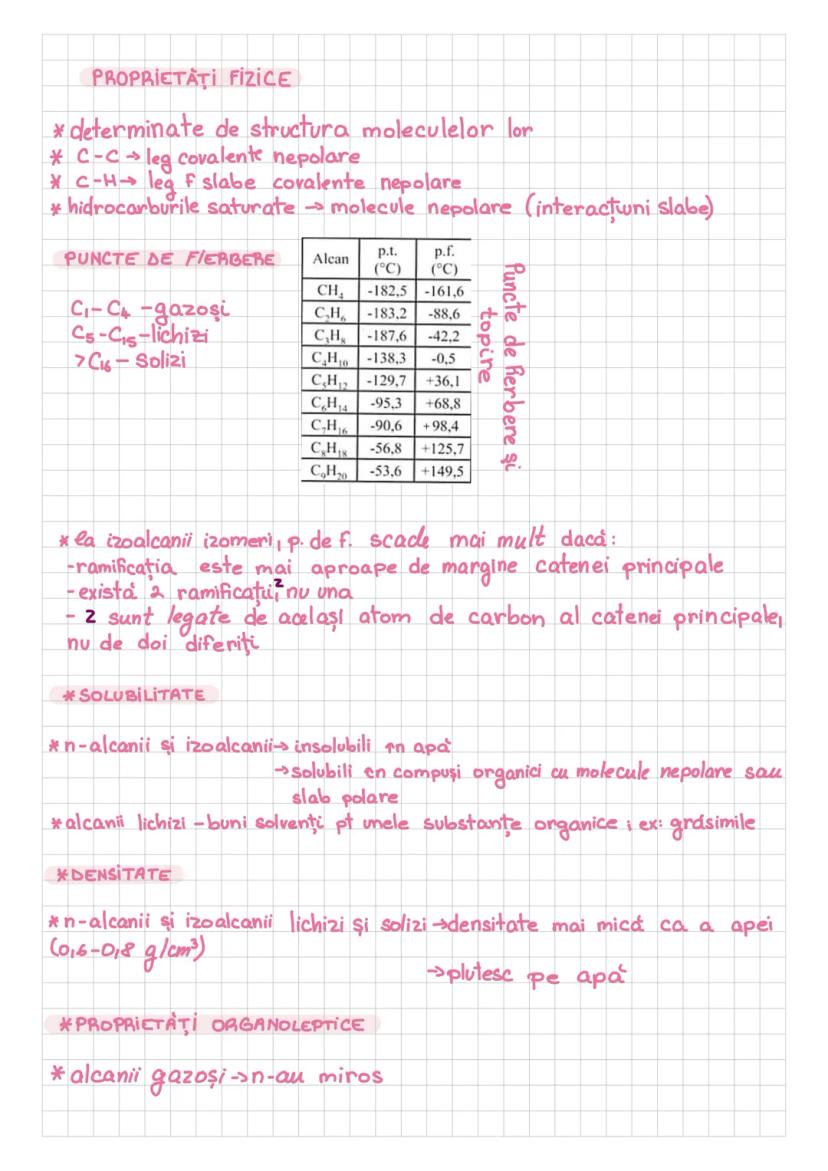 PROPRIETĂȚI FIZICE
* determinate de structura moleculelor lor
* C-C → leg covalente nepolare
* C-H → leg f slabe covalente nepolare
* hidrocarburile saturate → molecule nepolare (interacțiuni slabe)
PUNCTE DE FIERBERE
C₁- C₄ - gazoși
C₅ - C₁₅ - lichizi
>C₁₆ - Solizi
Alcan p.t. (°C) p.f. (°C)
CH₄ -182,5 -161,6
C₂H₆ -183,2 -88,6
C₃H₈ -187,6 -42,2
C₄H₁₀ -138,3 -0,5
C₅H₁₂ -129,7 +36,1
C₆H₁₄ -95,3 +68,8
C₇H₁₆ -90,6 +98,4
C₈H₁₈ -56,8 +125,7
C₉H₂₀ -53,6 +149,5
Puncte de fierbere și
topire
* la izoalcanii izomeri, p. de f. scade mai mult dacă:
-ramificația este mai aproape de margine catenei principale
- există 2 ramificații,² nu una
- 2 sunt legate de același atom de carbon al catenei principale,
nu de doi diferiți
* SOLUBILITATE
* n-alcanii și izoalcanii → insolubili în apă
→ solubili în compuși organici cu molecule nepolare sau
slab polare
* alcanii lichizi - buni solvenți pt unele substanțe organice ; ex: grăsimile
* DENSITATE
* n-alcanii și izoalcanii lichizi și solizi → densitate mai mică ca a apei
(0,6-0,8 g/cm³)
→ plutesc pe apă
* PROPRIETĂȚI ORGANOLEPTICE
* alcanii gazoși -> n-au miros